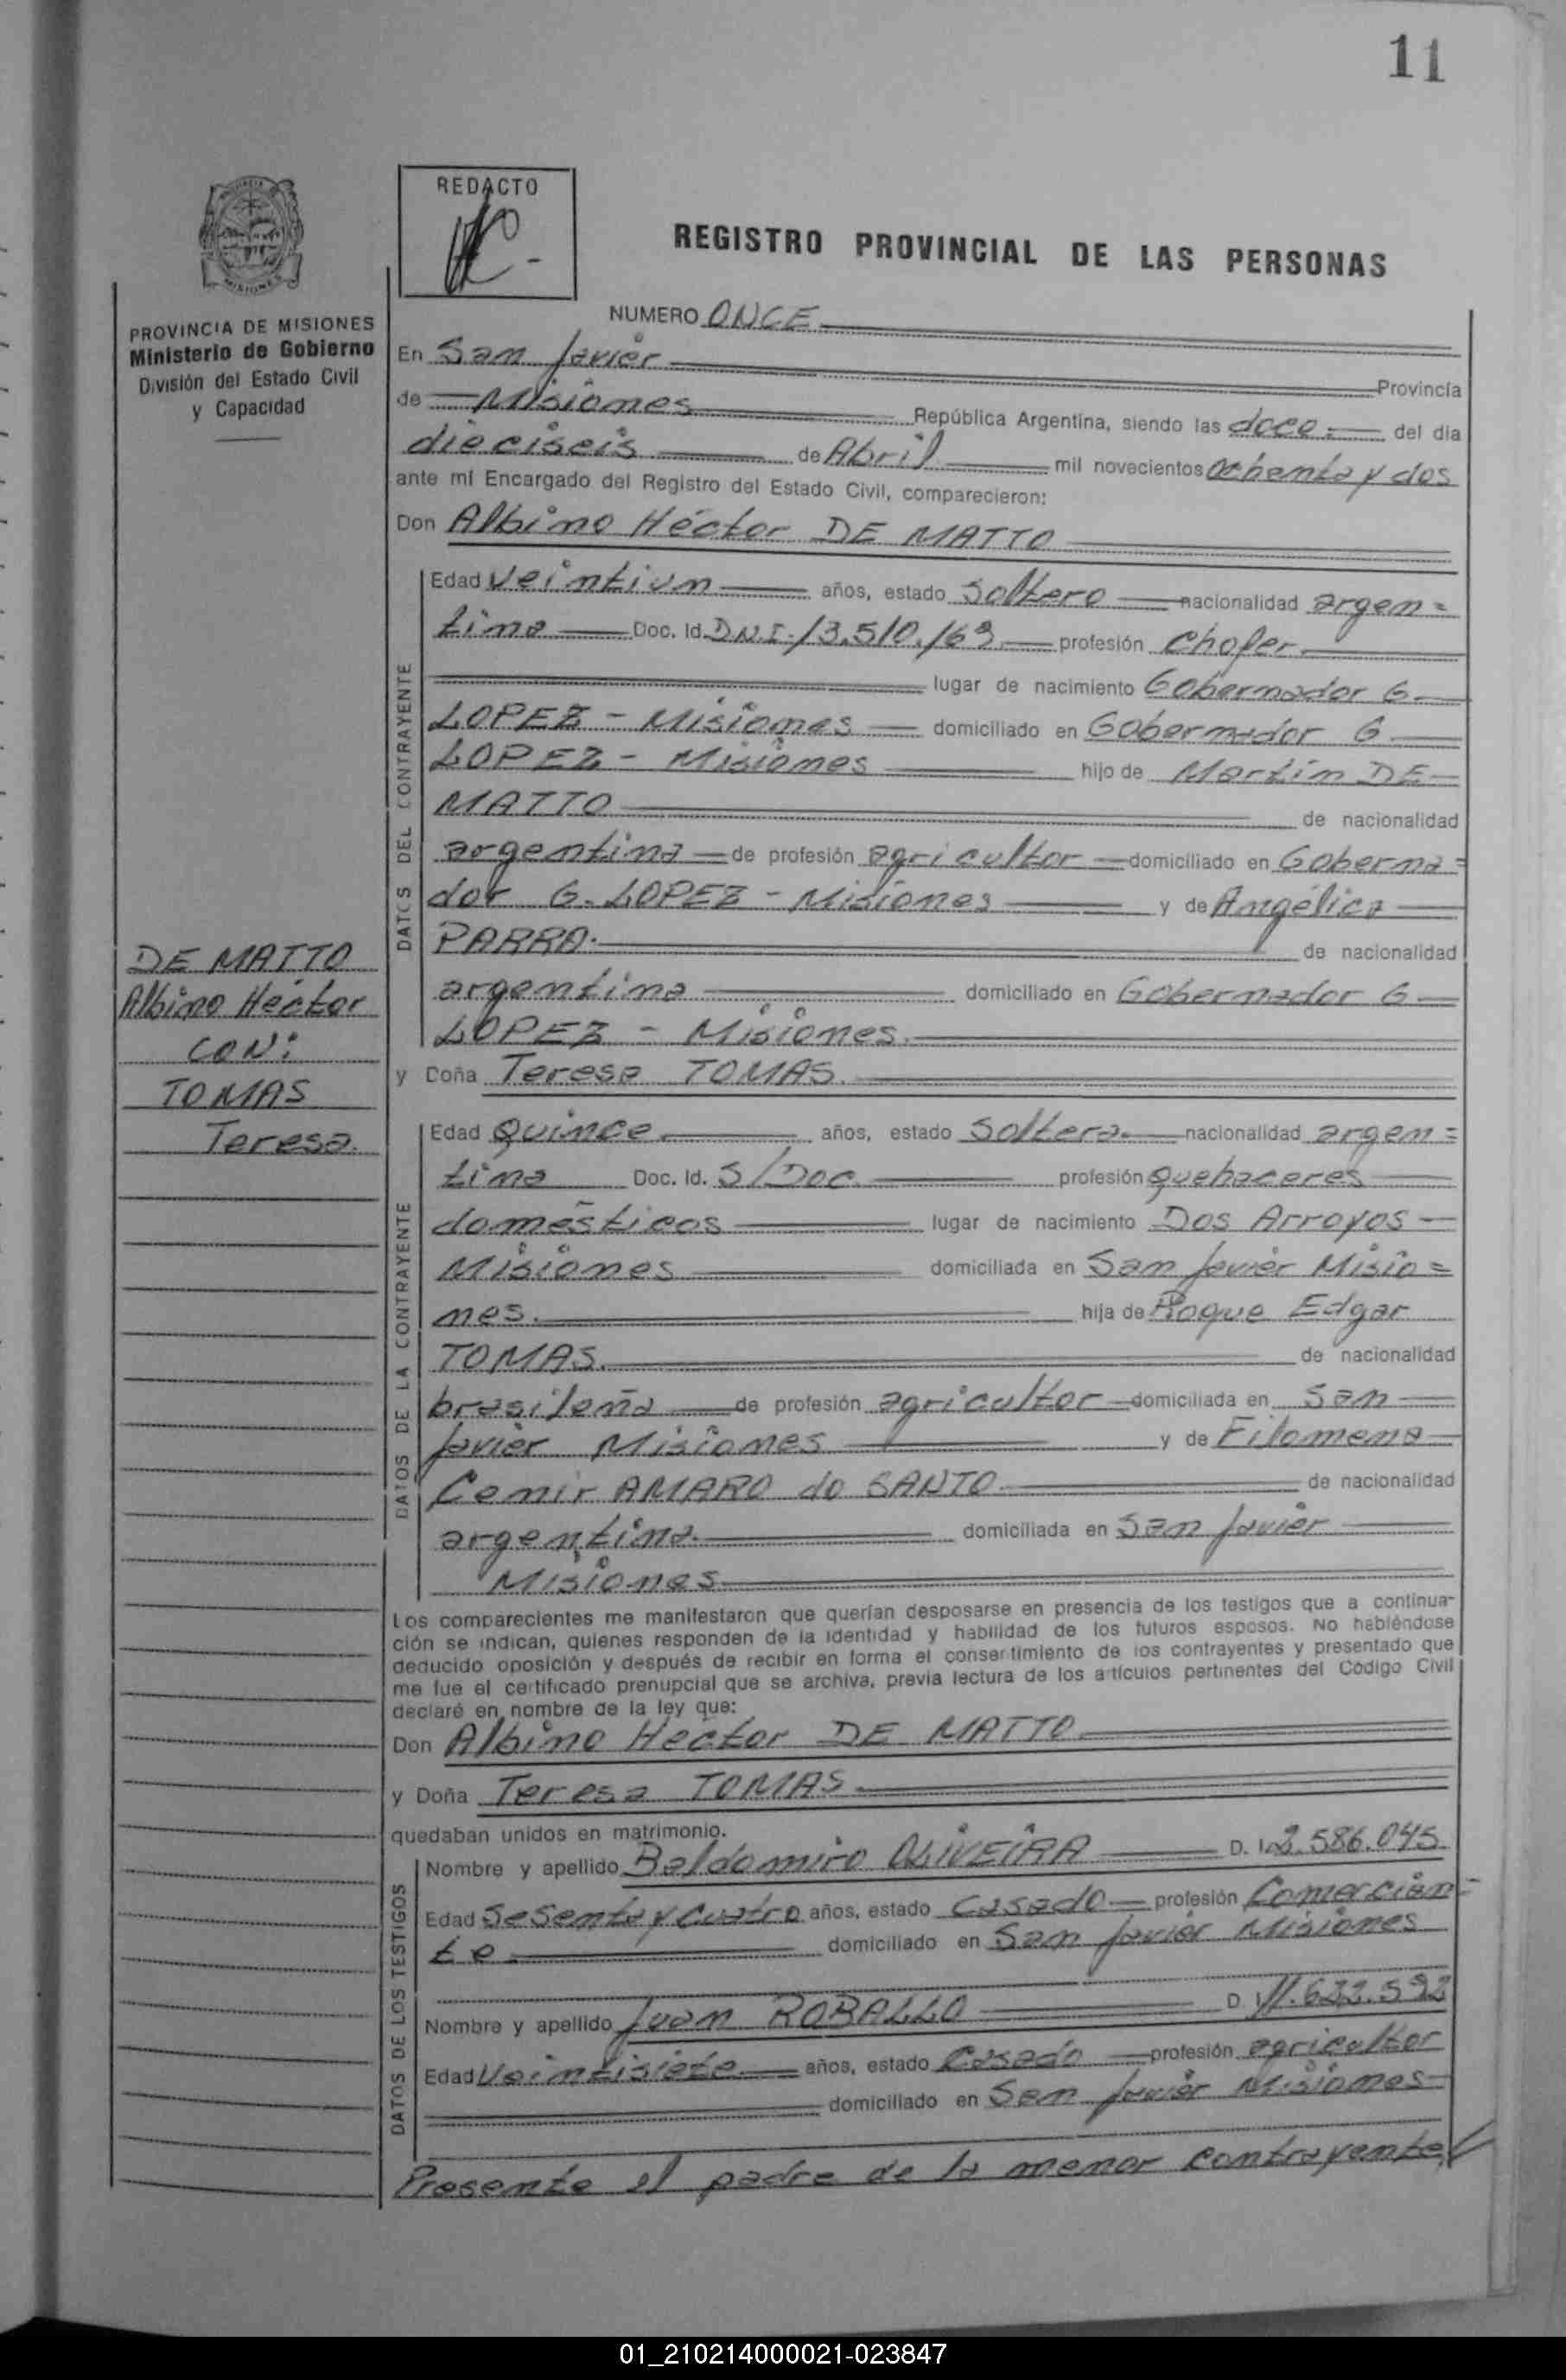 11
REDACTO
REGISTRO PROVINCIAL DE LAS PERSONAS
MISIONES
PROVINCIA DE MISIONES
Ministerio de Gobierno
División del Estado Civil
y Capacidad
DE MATTO
Albino Héctor
CON:
TOMAS
Teresa.
NUMERO ONCE
En San Javier Provincia
de Misiones República Argentina, siendo las doce.- del día
dieciséis de Abril mil novecientos ochenta y dos
ante mí Encargado del Registro del Estado Civil, comparecieron:
Don Albino Héctor DE MATTO
DATOS DEL CONTRAYENTE
Edad Veintiun años, estado Soltero nacionalidad argen=
tina Doc. Id. D.N.I. 13.510.169 profesión Chofer.
lugar de nacimiento Gobernador G.
LOPEZ - Misiones domiciliado en Gobernador G
LOPEZ - Misiones hijo de Martín DE
MATTO de nacionalidad
argentina de profesión agricultor domiciliado en Goberna=
dor G. LOPEZ - Misiones y de Angélica
PARRA. de nacionalidad
argentina domiciliado en Gobernador G
LOPEZ - Misiones.
y Doña Teresa TOMAS.
DATOS DE LA CONTRAYENTE
Edad Quince años, estado Soltera. nacionalidad argen=
tina Doc. Id. S/Doc. profesión quehaceres
domésticos lugar de nacimiento Dos Arroyos
Misiones domiciliada en San Javier Misio=
nes. hija de Roque Edgar
TOMAS. de nacionalidad
brasileña de profesión agricultor domiciliada en San
Javier Misiones y de Filomena
Cenir AMARO do SANTO de nacionalidad
argentina. domiciliada en San Javier
Misiones
Los comparecientes me manifestaron que querían desposarse en presencia de los testigos que a continua-
ción se indican, quienes responden de la identidad y habilidad de los futuros esposos. No habiéndose
deducido oposición y después de recibir en forma el consertimiento de los contrayentes y presentado que
me fue el certificado prenupcial que se archiva, previa lectura de los artículos pertinentes del Código Civil
declaré en nombre de la ley que:
Don Albino Hector DE MATTO
y Doña Teresa TOMAS
quedaban unidos en matrimonio.
DATOS DE LOS TESTIGOS
Nombre y apellido Baldomiro OLIVEIRA D. I. 2.586.045
Edad Sesenta y Cuatro años, estado Casado profesión Comercian=
te domiciliado en San Javier Misiones
Nombre y apellido Juan ROBALLO D. I. 11.622.592
Edad Veintisiete años, estado Casado profesión agricultor
domiciliado en San Javier Misiones
Presente el padre de la menor contrayente
01_210214000021-023847